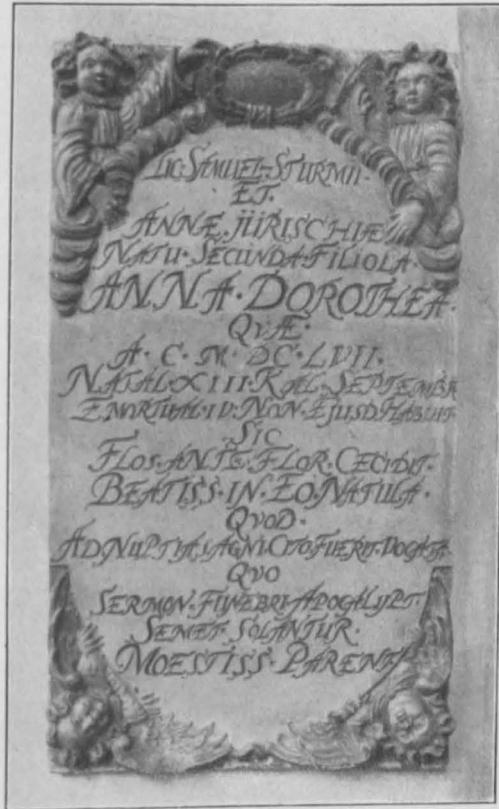 LIC·SAMUEL·STURMII·
ET·
ANNÆ JÜRISCHIÆ
NATU·SECUNDA·FILIOLA·
ANNA·DOROTHEA·
QVÆ·
A·C·M·DC·LVII·
NATAL·XIII·KAL·SEPTEMBR
EMORTUAL·IV·NON·EJUSD·HABUIT·
SIC
FLOS·ANTE·FLOR·CECIDIT·
BEATISS·IN·EO·NATULA·
QVOD·
AD·NUPTIAS·AGNI·CITO·FUERIT·VOCATA·
QVO
SERMON·FUNEBRI·APOCALYPT·
SEMET·SOLANTUR·
MOESTISS·PARENT